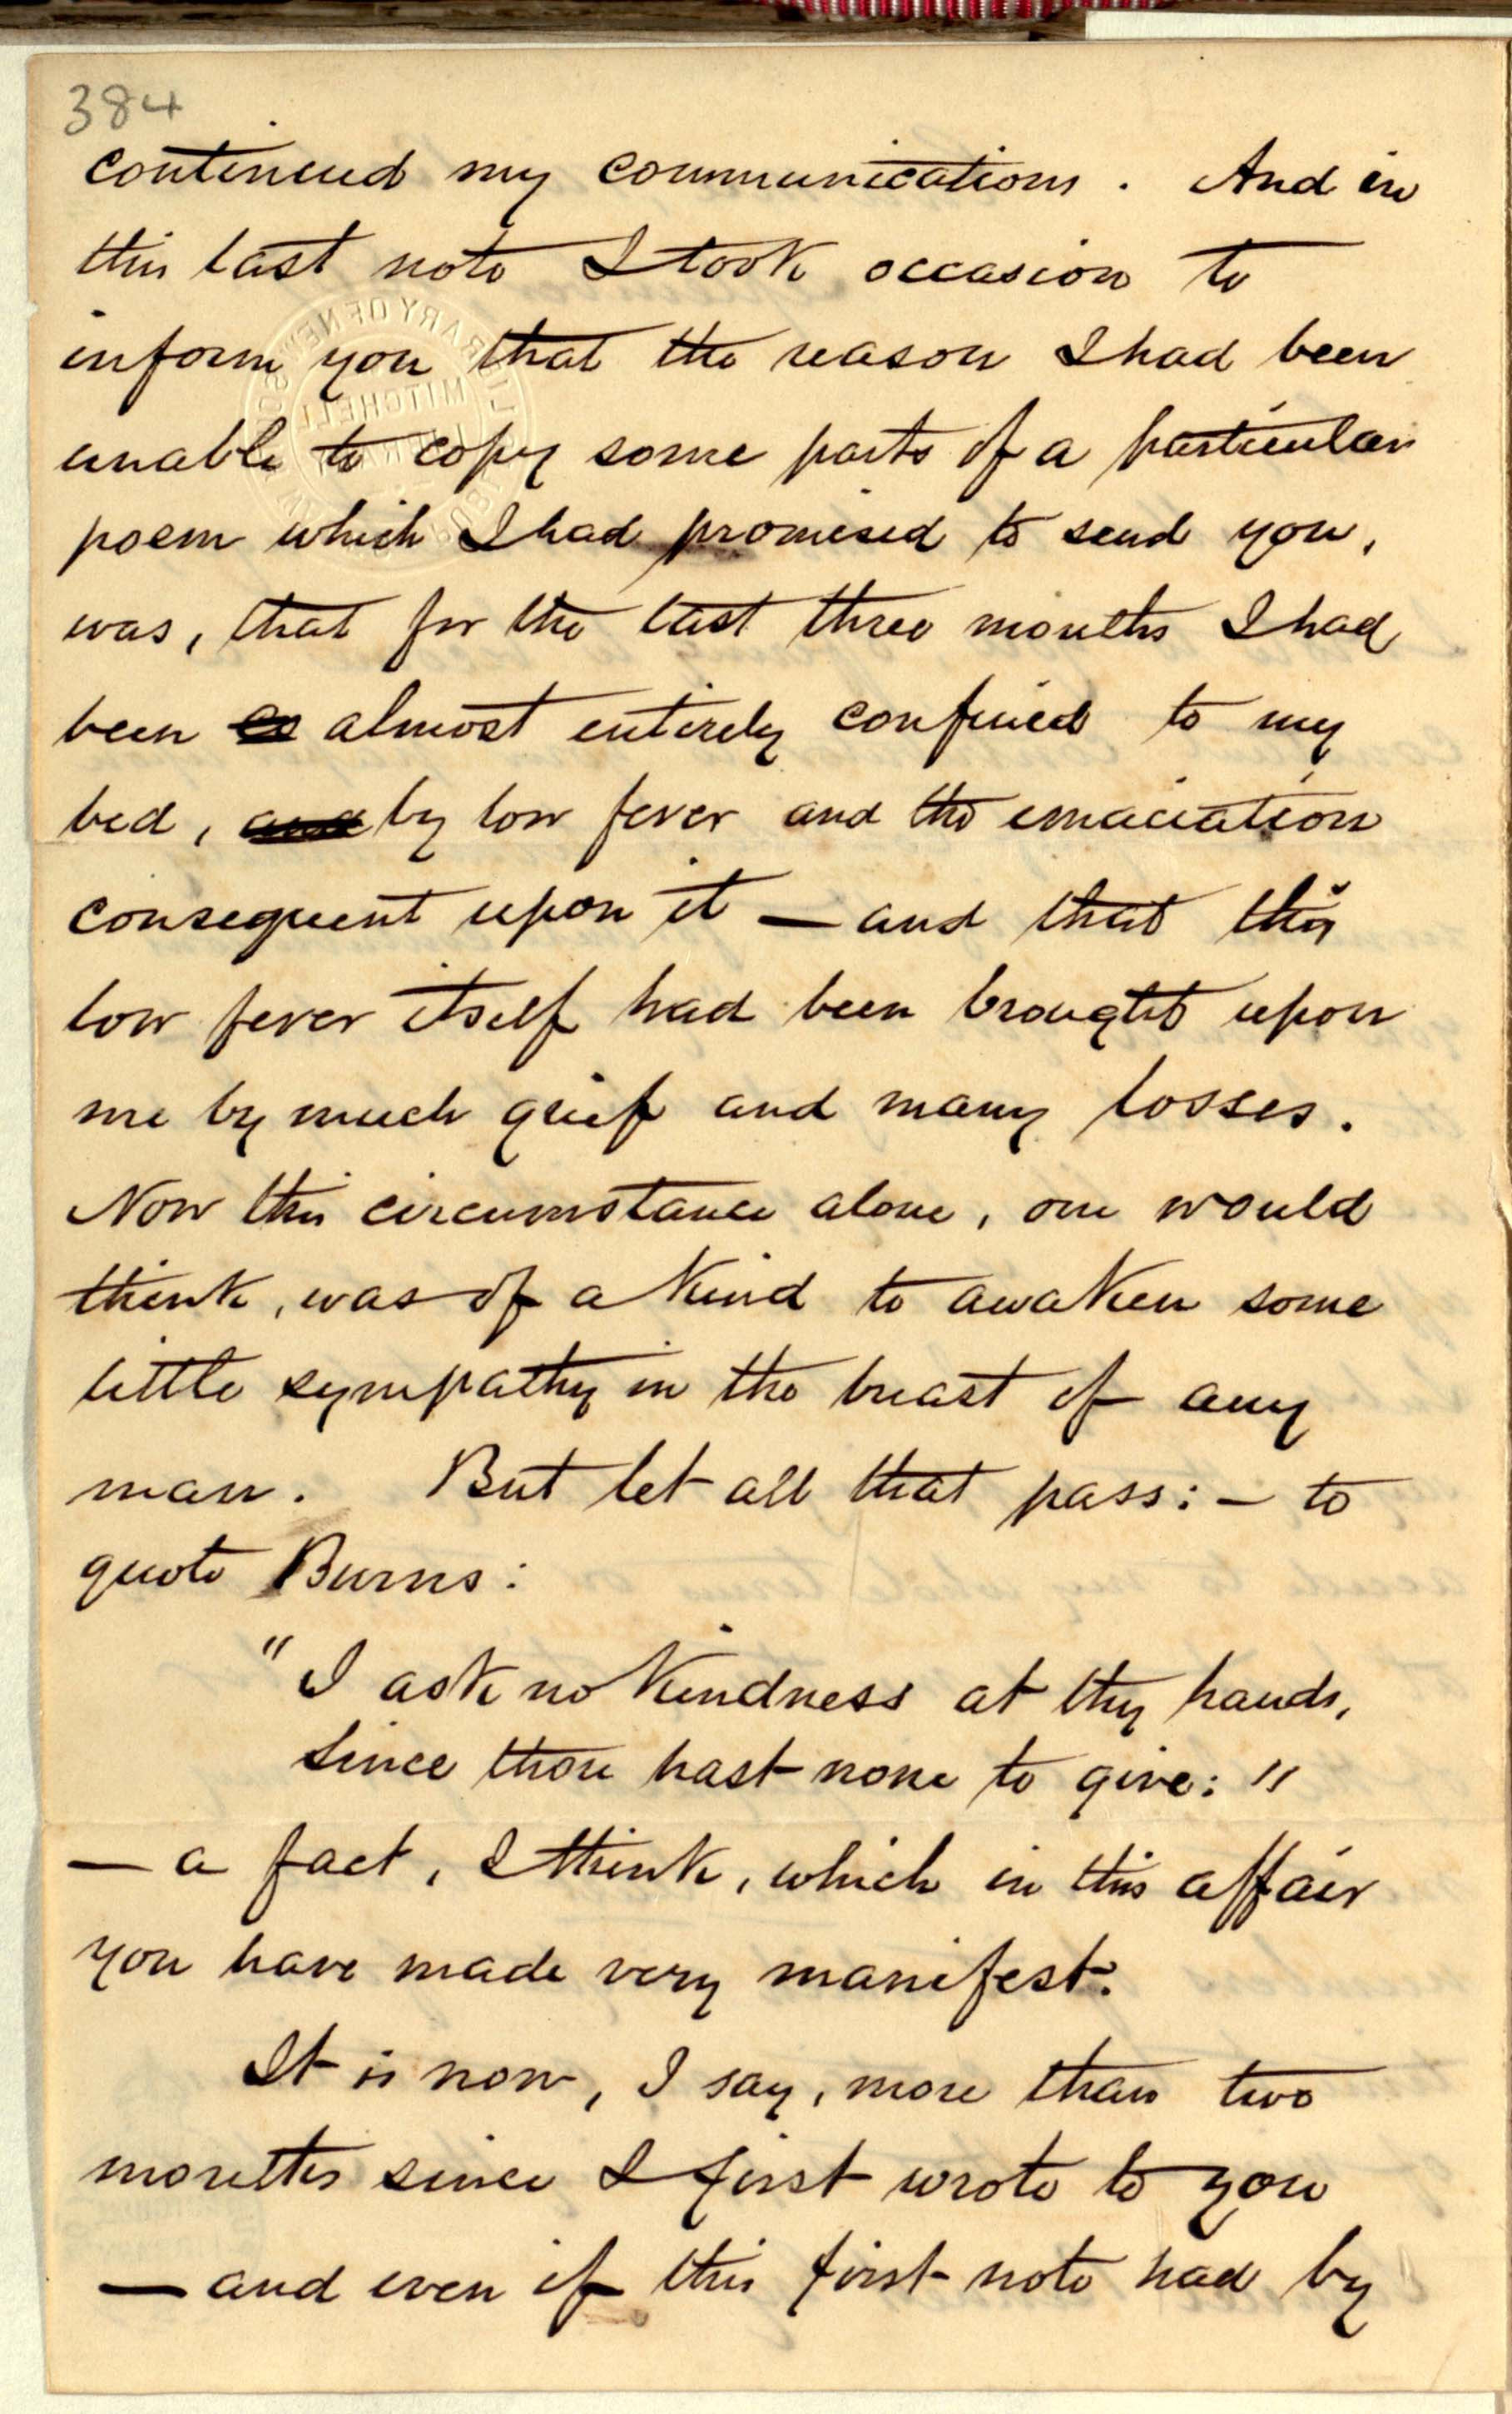 384
continued my communications. And in
this last note I took occasion to
inform you that the reason I had been
unable to copy some parts of a particular
poem which I had promised to send you,
was, that for the last three months I had
been almost entirely confined to my
bed, and by low fever and the emaciation
consequent upon it — and that this
low fever itself had been brought upon
me by much grief and many losses.
Now this circumstance alone, one would
think, was of a kind to awaken some
little sympathy in the breast of any
man. But let all that pass: — to
quote Burns:
"I ask no kindness at thy hands,
Since thou hast none to give:"
— a fact, I think, which in this affair
you have made very manifest.
It is now, I say, more than two
months since I first wrote to you
— and even if this first note had by